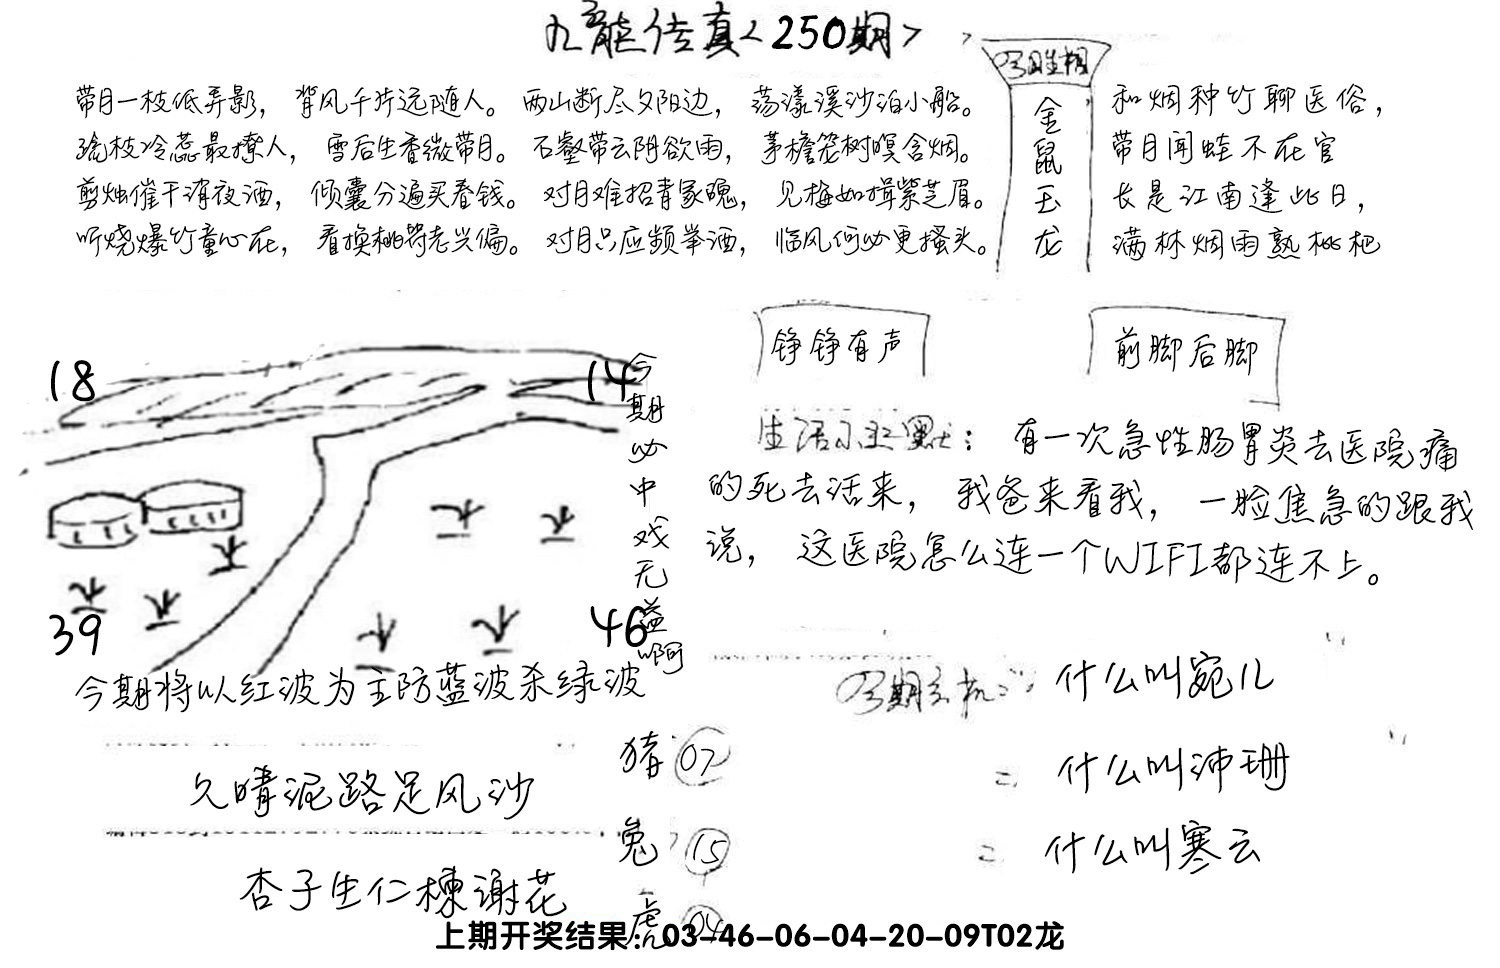 九龙传真<250期>
带月一枝低弄影，背风千片远随人。两山断尽夕阳边，荡漾溪沙泊小船。
疏枝冷蕊最撩人，雪后生香微带月。石壑带云阴欲雨，茅檐笼树暝含烟。
剪烛催干消夜酒，倾囊分遍买春钱。对月难招青冢魂，见梅如揖紫芝眉。
听烧爆竹童心在，看换桃符老兴偏。对月只应频举酒，临风何必更搔头。
今期生相
金鼠玉龙
和烟种竹聊医俗，
带月闻蛙不在官
长是江南逢此日，
满林烟雨熟枇杷
铮铮有声
前脚后脚
18
14
39
46
今期必中戏无益啊
生活小幽默：有一次急性肠胃炎去医院痛
的死去活来，我爸来看我，一脸焦急的跟我
说，这医院怎么连一个WIFI都连不上。
今期将以红波为主防蓝波杀绿波
久晴泥路足风沙
杏子生仁楝谢花
猪 07
兔 15
虎 04
今期玄机：什么叫宛儿
什么叫沛珊
什么叫寒云
上期开奖结果：03-46-06-04-20-09T02龙